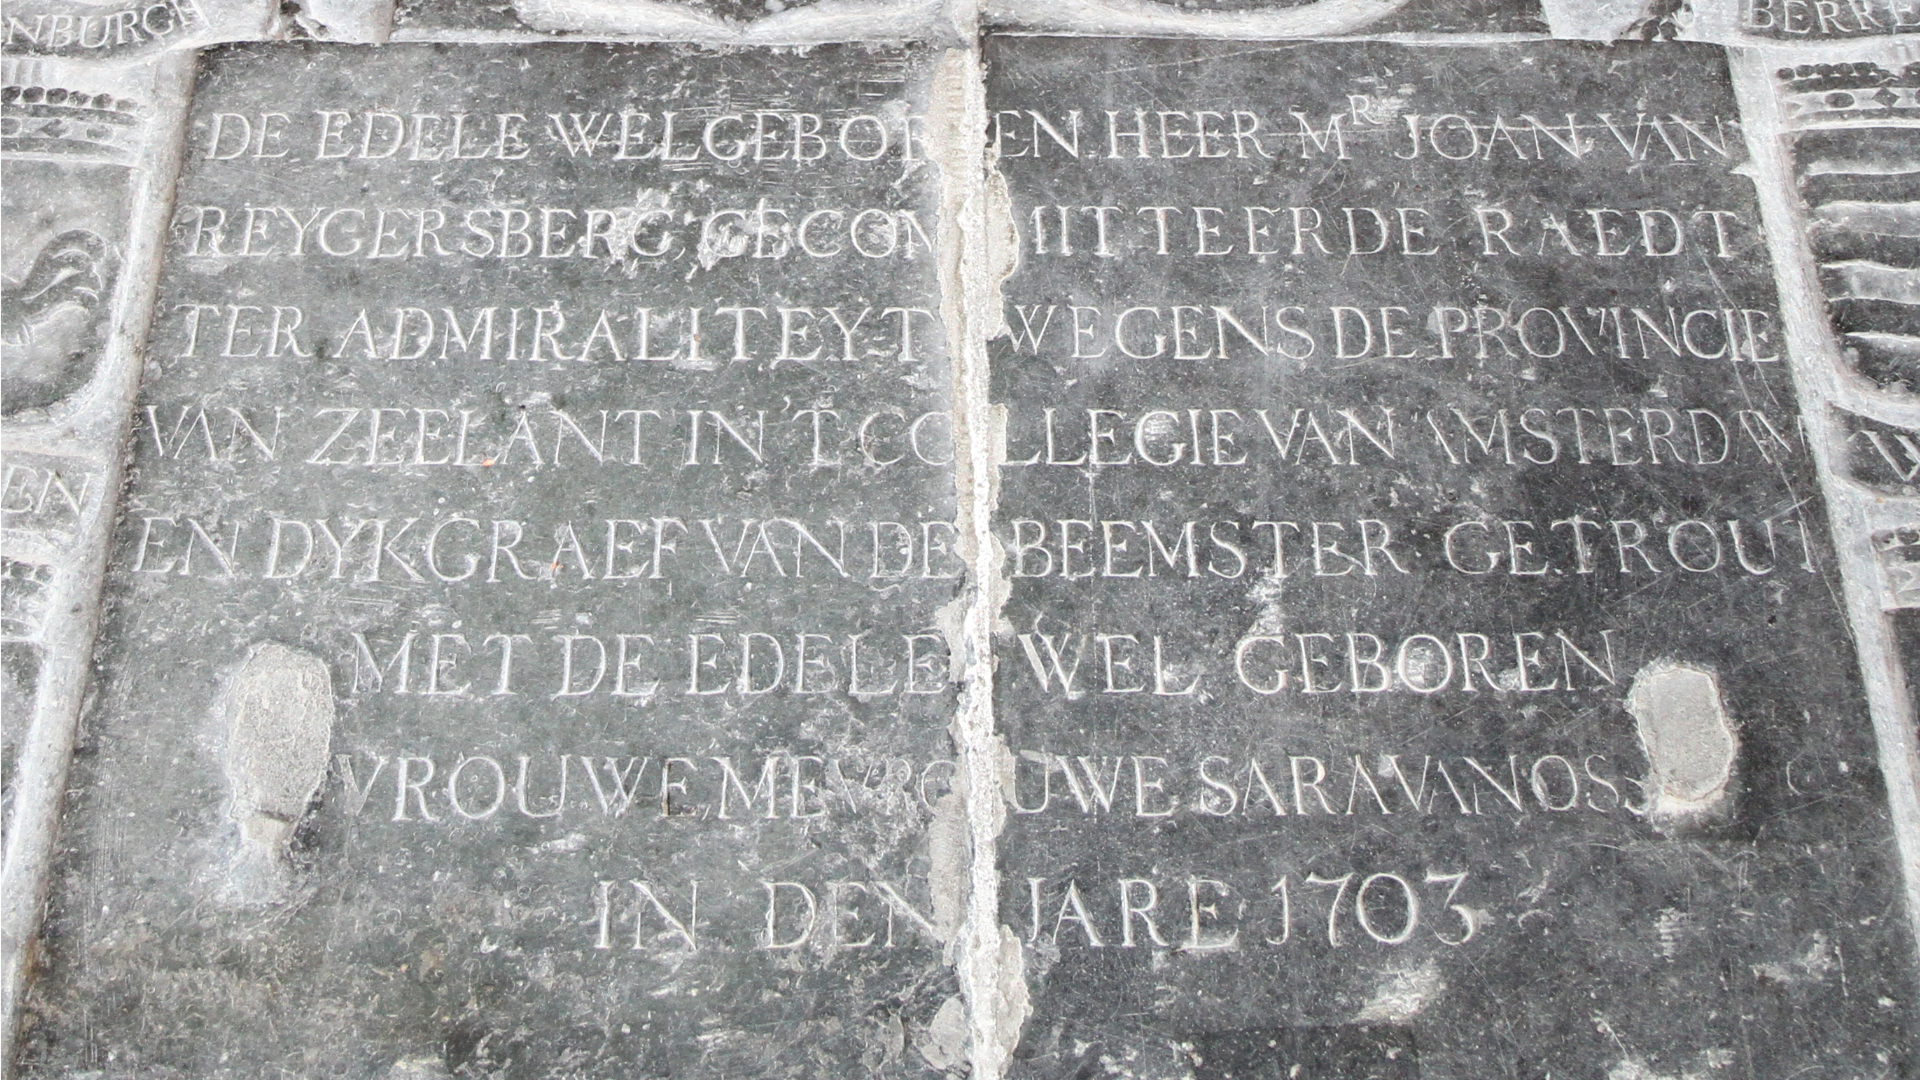 NBURGH
BERRE
DE EDELE WELGEBOREN HEER MR JOAN VAN
REYGERSBERG, GECOMMITTEERDE RAEDT
TER ADMIRALITEYT WEGENS DE PROVINCIE
VAN ZEELANT IN 'T COLLEGIE VAN AMSTERDAM
EN DYKGRAEF VAN DE BEEMSTER GETROUT
EN
MET DE EDELE WEL GEBOREN
VROUWE MEVROUWE SARA VAN OSS
IN DEN JARE 1703